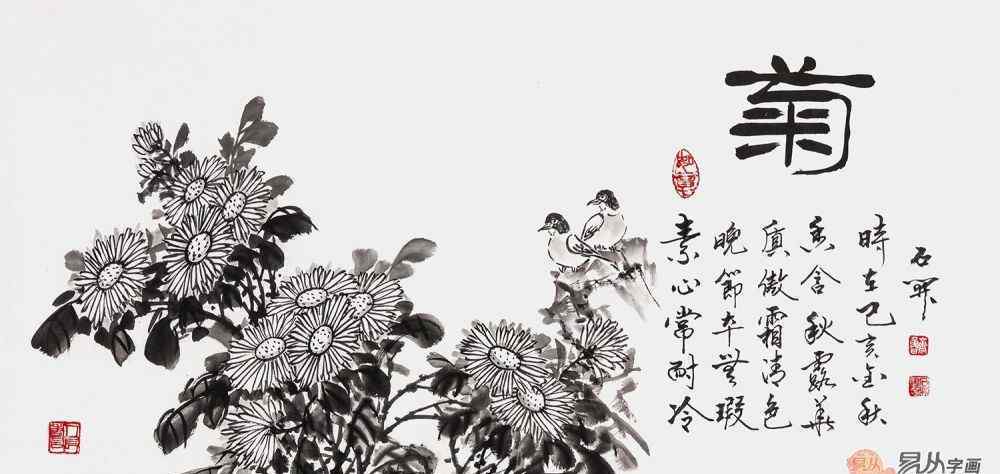 菊
素心常耐冷
晚節本無瑕
質傲霜清色
香含秋露華
時在己亥金秋
石
易从字画